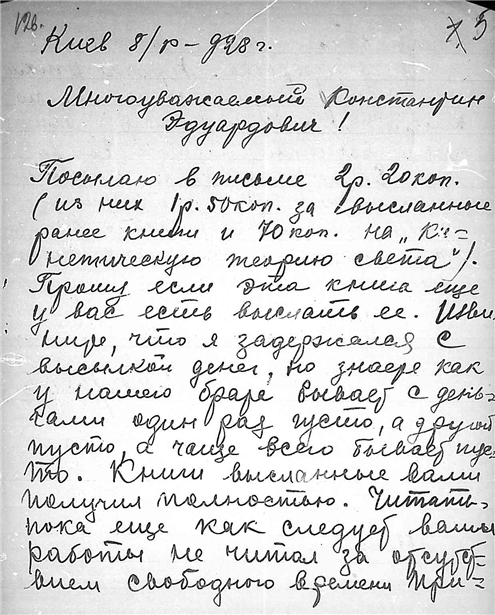 126.
5
Киев 8/IV-928 г.
Многоуважаемый Константин
Эдуардович!
Посылаю в письме 2р. 20коп.
(из них 1р. 50коп. за высланные
ранее книги и 70коп. на „Ки-
нетическую теорию света").
Прошу если эта книга еще
у вас есть выслать ее. Изви
ните, что я задержался с
высылкой денег, но знаете как
у нашего брата бывает с день-
гами один раз густо, а другой
пусто, а чаще всего бывает пус-
то. Книги высланные вами
получил полностью. Читать
пока еще как следует вашы
работы не читал за отсутст-
вием свободного времени при-